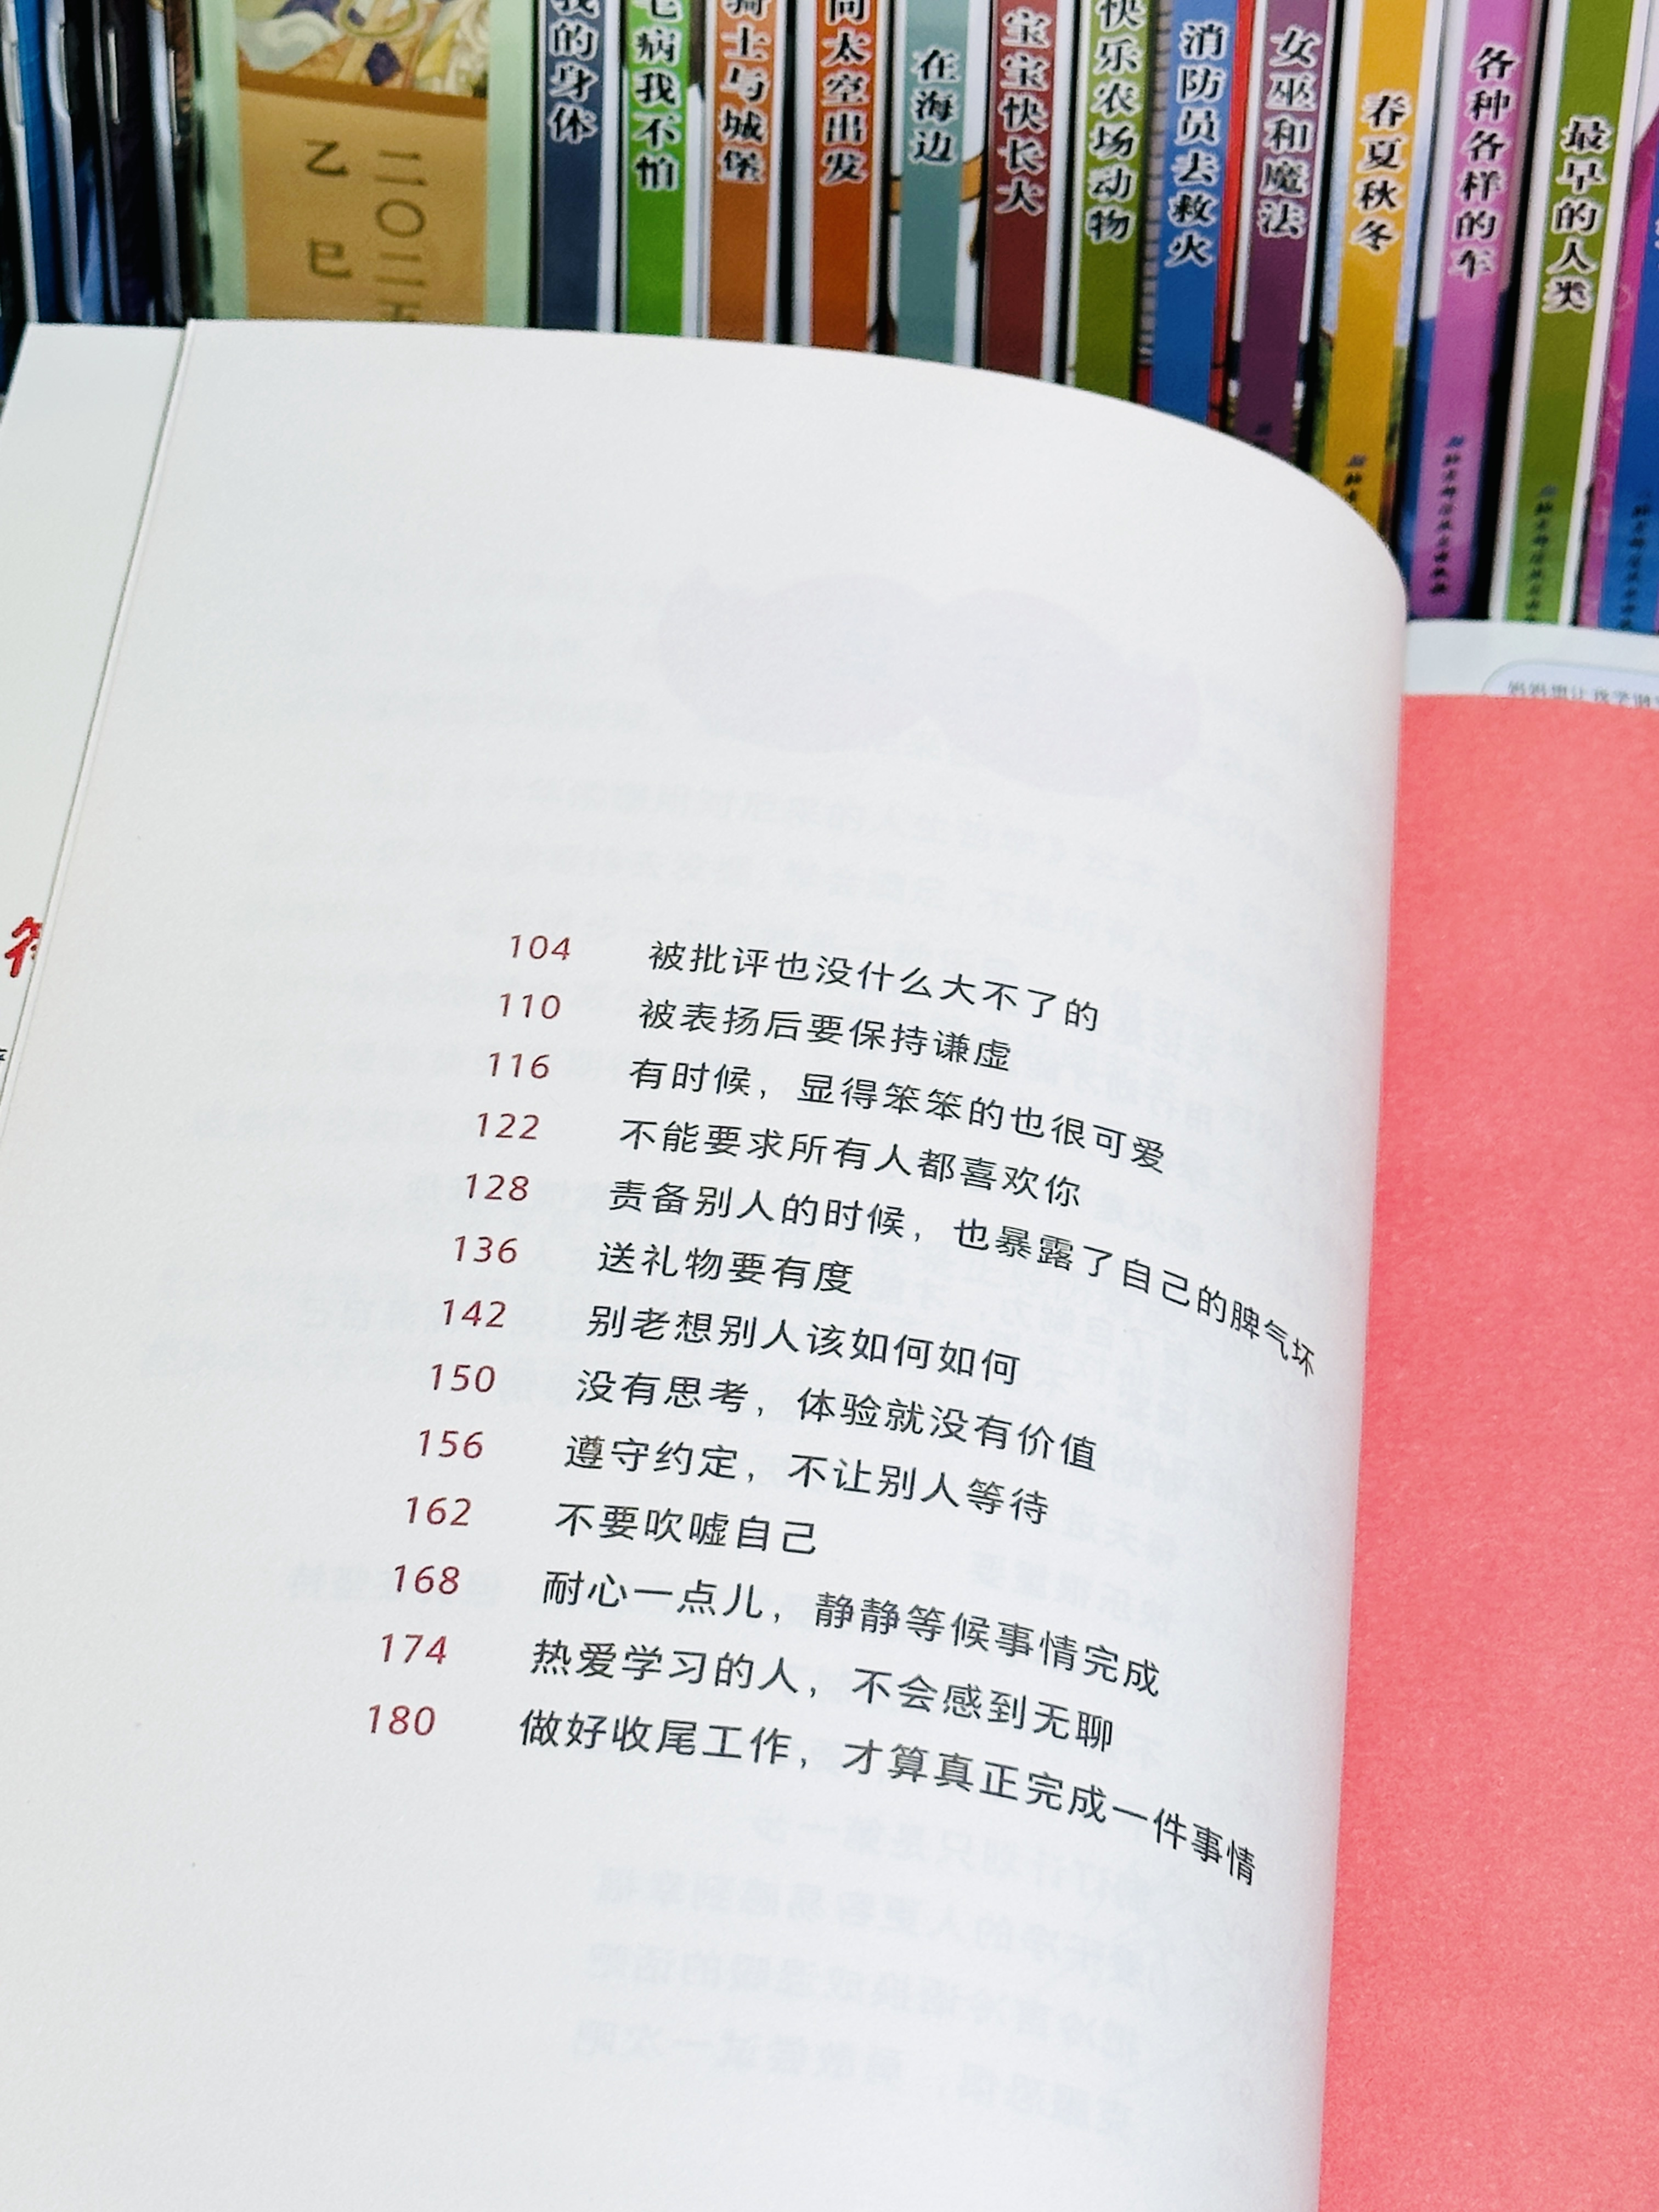 乙巳
二〇二五
我的身体
毛病我不怕
骑士与城堡
向太空出发
在海边
宝宝快长大
快乐农场动物
消防员去救火
女巫和魔法
春夏秋冬
各种各样的车
最早的人类
104 被批评也没什么大不了的
110 被表扬后要保持谦虚
116 有时候，显得笨笨的也很可爱
122 不能要求所有人都喜欢你
128 责备别人的时候，也暴露了自己的脾气坏
136 送礼物要有度
142 别老想别人该如何如何
150 没有思考，体验就没有价值
156 遵守约定，不让别人等待
162 不要吹嘘自己
168 耐心一点儿，静静等候事情完成
174 热爱学习的人，不会感到无聊
180 做好收尾工作，才算真正完成一件事情